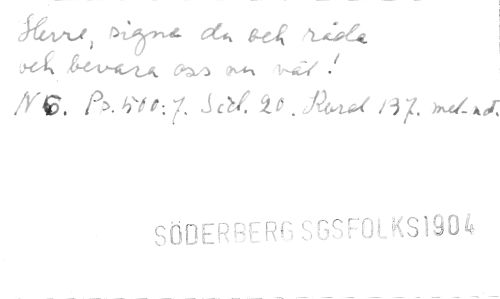 Herre, signe du och råde
och bevara oss nu väl!
N 6. Ps. 500:7. Sid. 20. Koral 137. mel.-nd.
SÖDERBERG SGSFOLKS1904